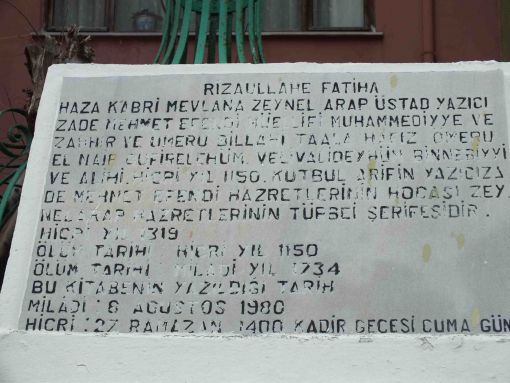 RIZAULLAHE FATİHA
HAZA KABRİ MEVLANA ZEYNEL ARAP ÜSTAD YAZICI
ZADE MEHMET EFENDİ MUHAMMEDİYYE VE
ZAHHIR VE UMERU BİLLAHİ TAALA HAFIZ
EL NAİF VEL VALİDEYHÜM BİNNEBİYYİ
VE ALİHİ. HİCRİ YIL 1150. KUTBUL ARİFİN YAZICIZA
DE MEHMET EFENDİ HAZRETLERİNİN HOCASI ZEY
NEL ARAP HAZRETLERİNİN TÜRBEİ ŞERİFESİDİR.
HİCRİ YIL 1319
ÖLÜM TARİHİ HİCRİ YIL 1150
ÖLÜM TARİHİ MİLADİ YIL 1734
BU KİTABENİN YAZILDIĞI TARİH
MİLADİ : 8 AĞUSTOS 1980
HİCRİ : 27 RAMAZAN 1400 KADİR GECESİ CUMA GÜN